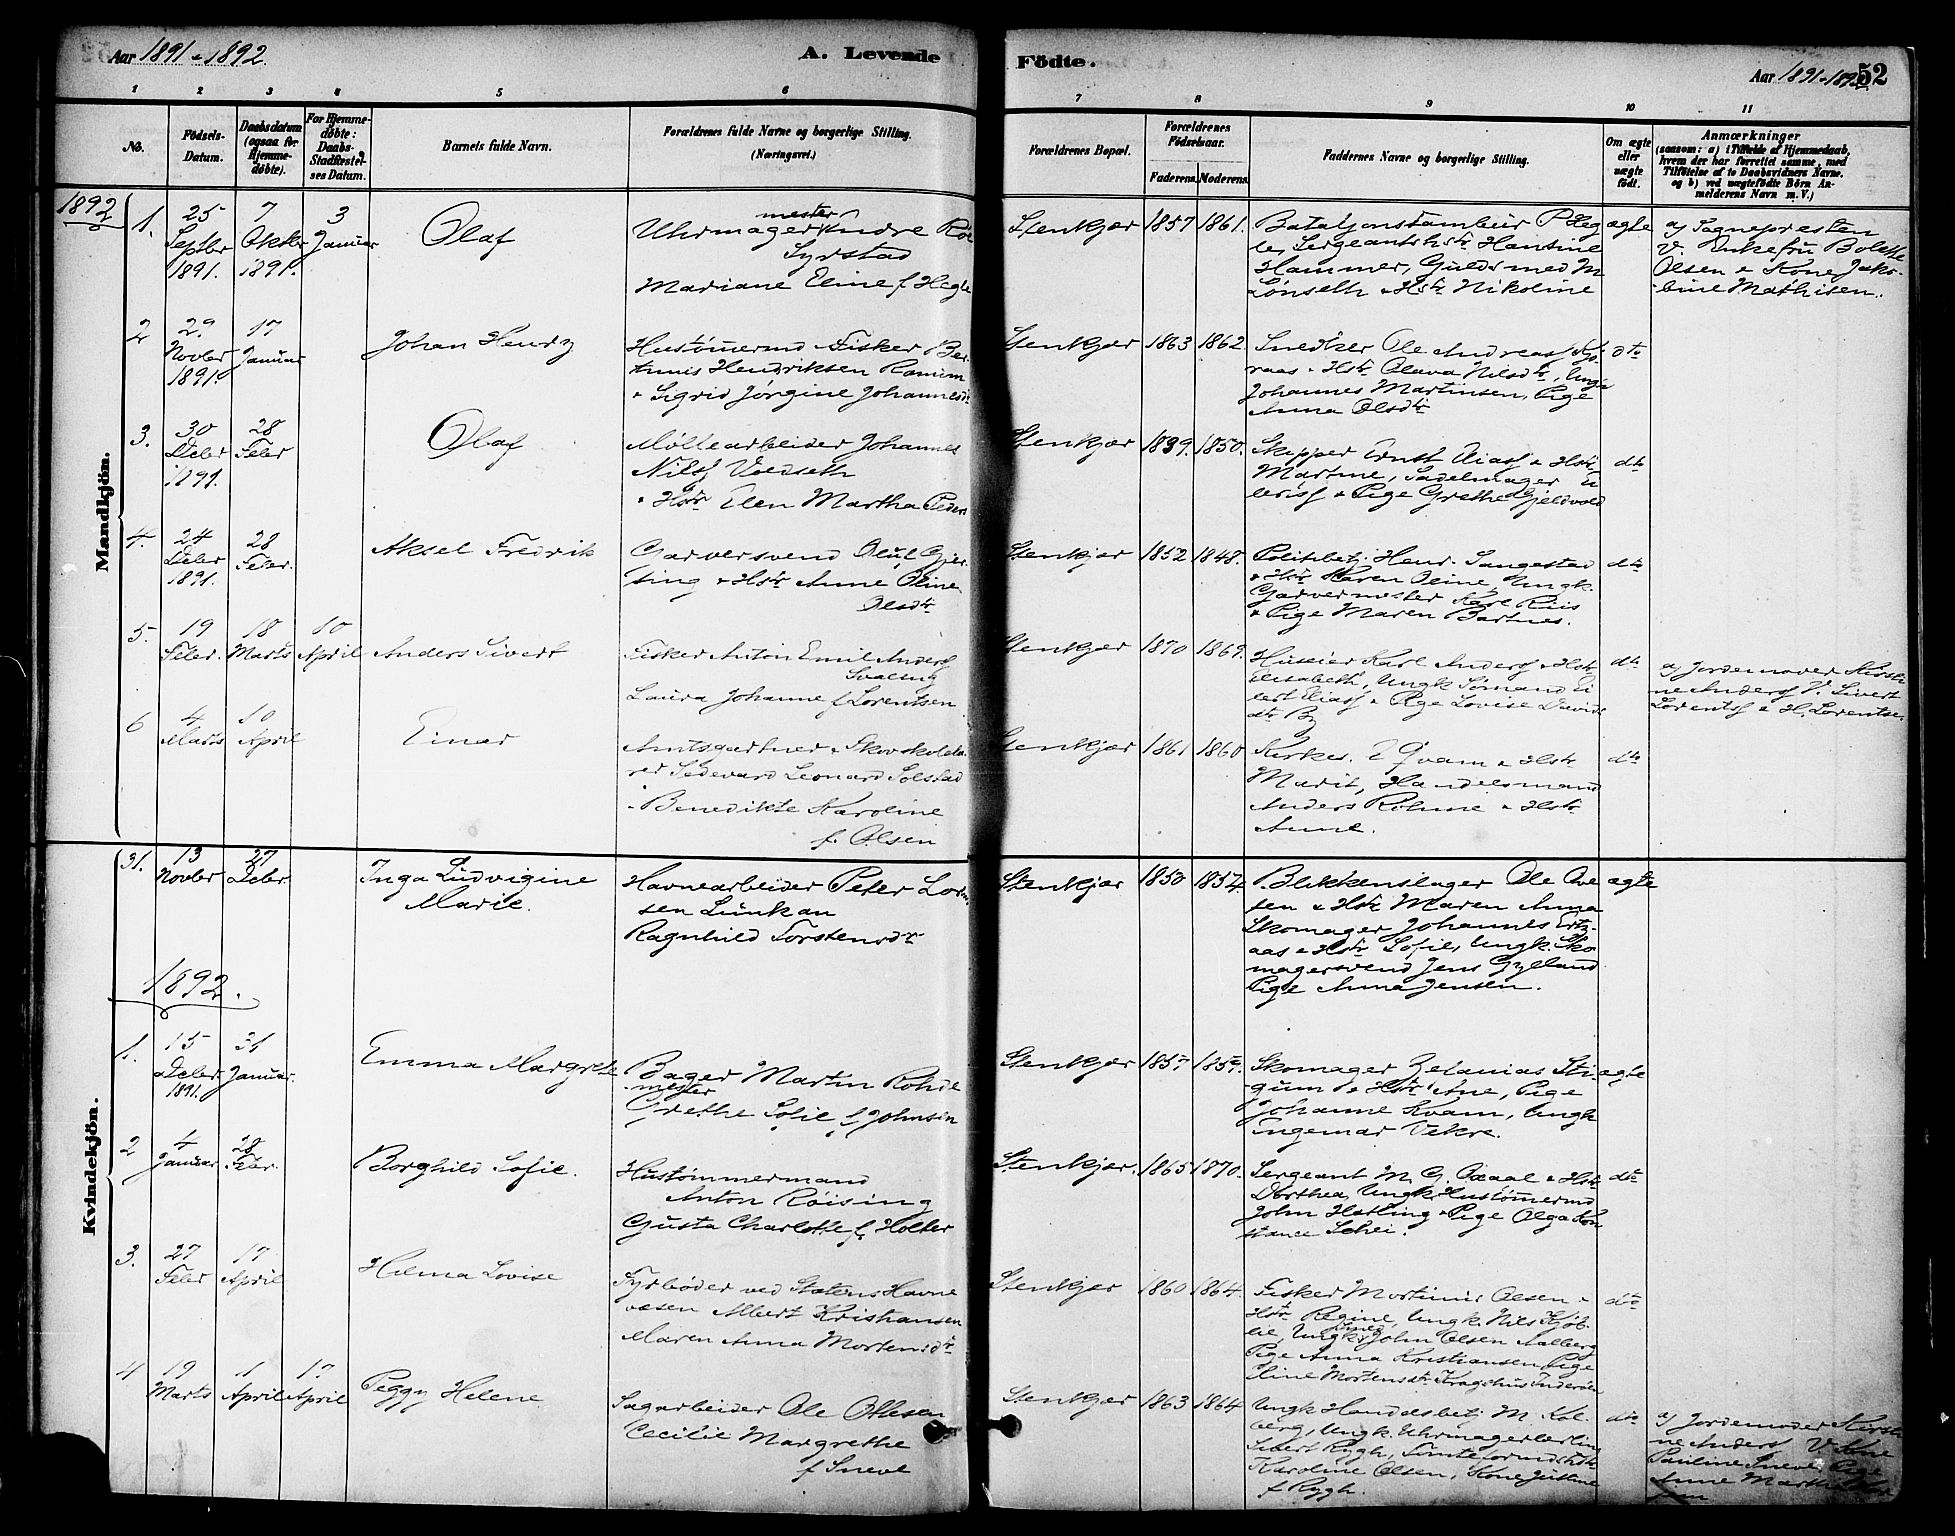 Aar 1891 - 1892.
A. Levende Födte.
Aar 1891-1892
52
1 2 3 4 5 6 7 8 9 10 11
No.
Födsels-Datum.
Daabsdatum (ogsaa for Hjemmedöbte).
For Hjemmedöbte: Daabs-Stadfæstelses Datum.
Barnets fulde Navn.
Forældrenes fulde Navne og borgerlige Stilling.
(Næringsvei.)
Forældrenes Bopæl.
Forældrenes Födselsaar.
Faderens. Moderens.
Faddernes Navne og borgerlige Stilling.
Om ægte eller uægte födt.
Anmærkninger
(saasom: a) i Tilfælde af Hjemmedaab, hvem der har forrettet samme, med Tilföielse af to Daabsvidners Navne. og b) ved uægtefödte Börn Anmelderens Navn m. V.)
Mandkjön.
1892
1.
25 Septbr 1891.
7 Oktbr 1891.
3 Januar
Olaf
Uhrmagermester Andre
Syrstad
Mariane Eline f Hegle
Stenkjær 1857 1861.
Bataljonstambur P Heg
le, Sergeantshstr Hansine
Hammer, Guldsmed M
Lønseth & Hstr Nikoline
ægte
a) Sognepresten
V. Enkefru Bolette
Olsen & Kone Jako-
bine Mathisen.
2
29 Novbr 1891.
17 Januar
Johan Henry
Hustømermd & Fisker
Hendriksen
& Sigrid Jørgine Johannesd
Stenkjær 1863 1862
Snedker Ole Andreass
& Hstr Olava Nilsdtr, Ungk
Johannes Martinsen, Pige
Anna Olsdtr
dto
3.
30 Debr 1891.
28 Febr
Olaf
Møllearbeider Johannes
Nilss
& Hstr Elen Martha Peders
Stenkjær 1839. 1850.
Skipper Ernst Eliass & Hstr
Martine, Sadelmager
& Pige Grethe Gjeldvold
dto
4.
24 Debr 1891.
28 Febr.
Aksel Fredrik
Garversvend Oluf Gjer
ting & Hstr Anne Oline
Olsdtr
Stenkjær 1852 1848.
Politibetj. Henr. Sangestad
& Hstr Karen Oline, Ungk.
Garvermester Karl Riis
& Pige Maren Bartnes.
dto
5.
19 Febr.
18 Marts
10 April
Anders Sivert
Fisker Anton Emil Anderss
Laura Johanne f Lorentsen
Stenkjær 1870 1869.
Huseier Karl Anderss & Hstr
Elisabeth, Ungk Sømand Ei
lert Eliass & Pige Lovise Davids
dtr By
dto
a) Jordemoder Kirsti
ne Anderss V. Sivert
Lorentss & H. Lorentse.
6
4 Marts
10 April
Einar
Amtsgartner & Skovskolebe
rer Leonard Solstad
& Benedikte Karoline
f. Olsen
Stenkjær 1861 1860
Kirkes. E Qvam & Hstr
Marit, Handelsmand
Anders Rohme & Hstr
Anne.
dto
Kvindekjön.
31.
13 Novbr
27 Debr.
Inga Ludvigine
Marie.
Havnearbeider Peter
sen Lunkan
Ragnhild Torstensdr
Stenkjær 1850 1852.
Blikkenslager Ole
sen & Hstr Maren Anna
Skomager Johannes
aas & Hstr Sofie, Ungk. Sko
magersvend Jens Gylland
Pige Anna Jensen.
ægte
1892.
1.
15 Debr 1891.
31 Januar.
Emma Margrete
Bagermester Martin Rohde
Grethe Sofie f Johnsen
Stenkjær 1857 1859.
Skomager Zefanias Sti
gum & Hstr Ane, Pige
Johanne Kvam, Ungk
Ingemar Vekre.
ægte
2
4 Januar
28 Febr.
Borghild Sofie.
Hustømmermand
Anton Røising
Gusta Charlotte f. Holter
Stenkjær. 1865 1870.
Sergeant M. G. Oxaal & Hstr
Dorthea, Ungk. Hustømermd
John Hatling & Pige Olga Kon
stance Schei.
dto
3.
27 Febr
17 April
Helma Lovise
Fyrbøder ved Statens Havne
væsen Albert Kristiansen
Maren Anna Mortensdtr
Stenkjær 1860 1864.
Fisker Mortinus Olsen &
Hstr Regine, Ungk. Nils Kjøb
lie, Ungk. John Olsen Aalberg
Pige Anna Kristiansen Pige
Eline Mortensdtr Inderøen
dto
4
19 Marts
1 April
17 April
Peggy Helene
Sagarbeider Ole Ottesen
Cecilie Margrethe
f Sneve
Stenkjær 1863 1864
Ungk Handelsbetj M. Kol
berg, Ungk. Uhrmagerlærling
Sibert Rygh, Tomteformdshstr
Karoline Olsen, Kone Justine
f Rygh.
dto
a) Jordemoder Kirsti
ne Anderss V. Kone
Pauline Sneve, Pige
Anne Martha